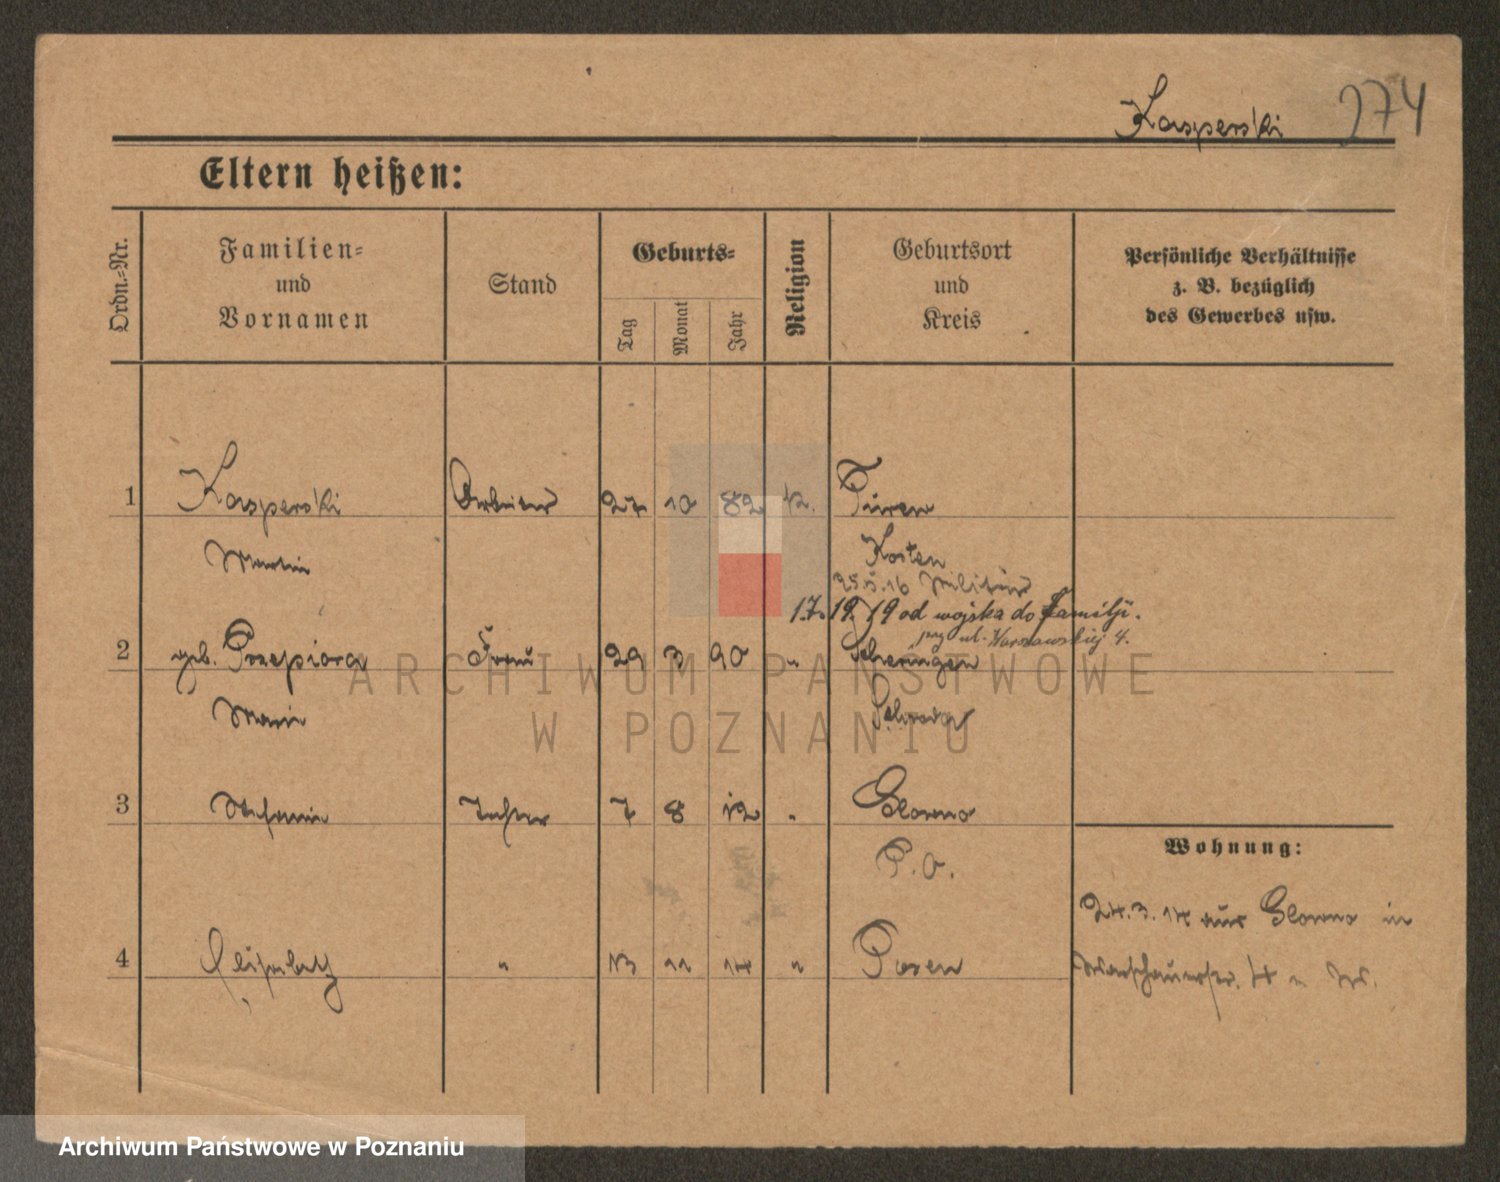 Kasperski 274
Eltern heißen:
Ordn.=Nr.
Familien=
und
Vornamen
Stand
Geburts=
Tag
Monat
Jahr
Religion
Geburtsort
und
Kreis
Persönliche Verhältnisse
z. B. bezüglich
des Gewerbes usw.
1 Kasperski Arbeiter 27 10 82 k. Turew
Martin Kosten
25.5.16 Militär
17. 19 od wojska do Familji.
przy ul. Warszawskiej 4.
2 geb. Przepiora Frau 29 3 90 "
Marie Schroda
3 Stefanie Tochter 7 8 12 " Glowno
P. O.
4 Elisabeth " 13 11 14 " Posen
Wohnung:
24.3.14 aus Glowno in
Warschauerstr. 4
ARCHIWUM PAŃSTWOWE
W POZNANIU
Archiwum Państwowe w Poznaniu